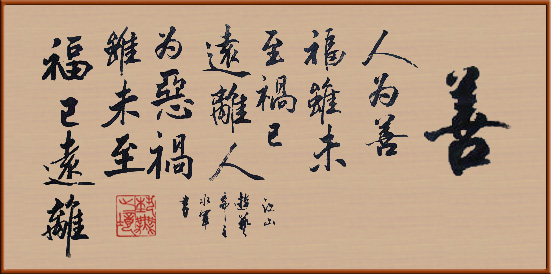 善
人为善
福雖未
至禍已
遠離人
为惡禍
雖未至
福已遠離
江山
書